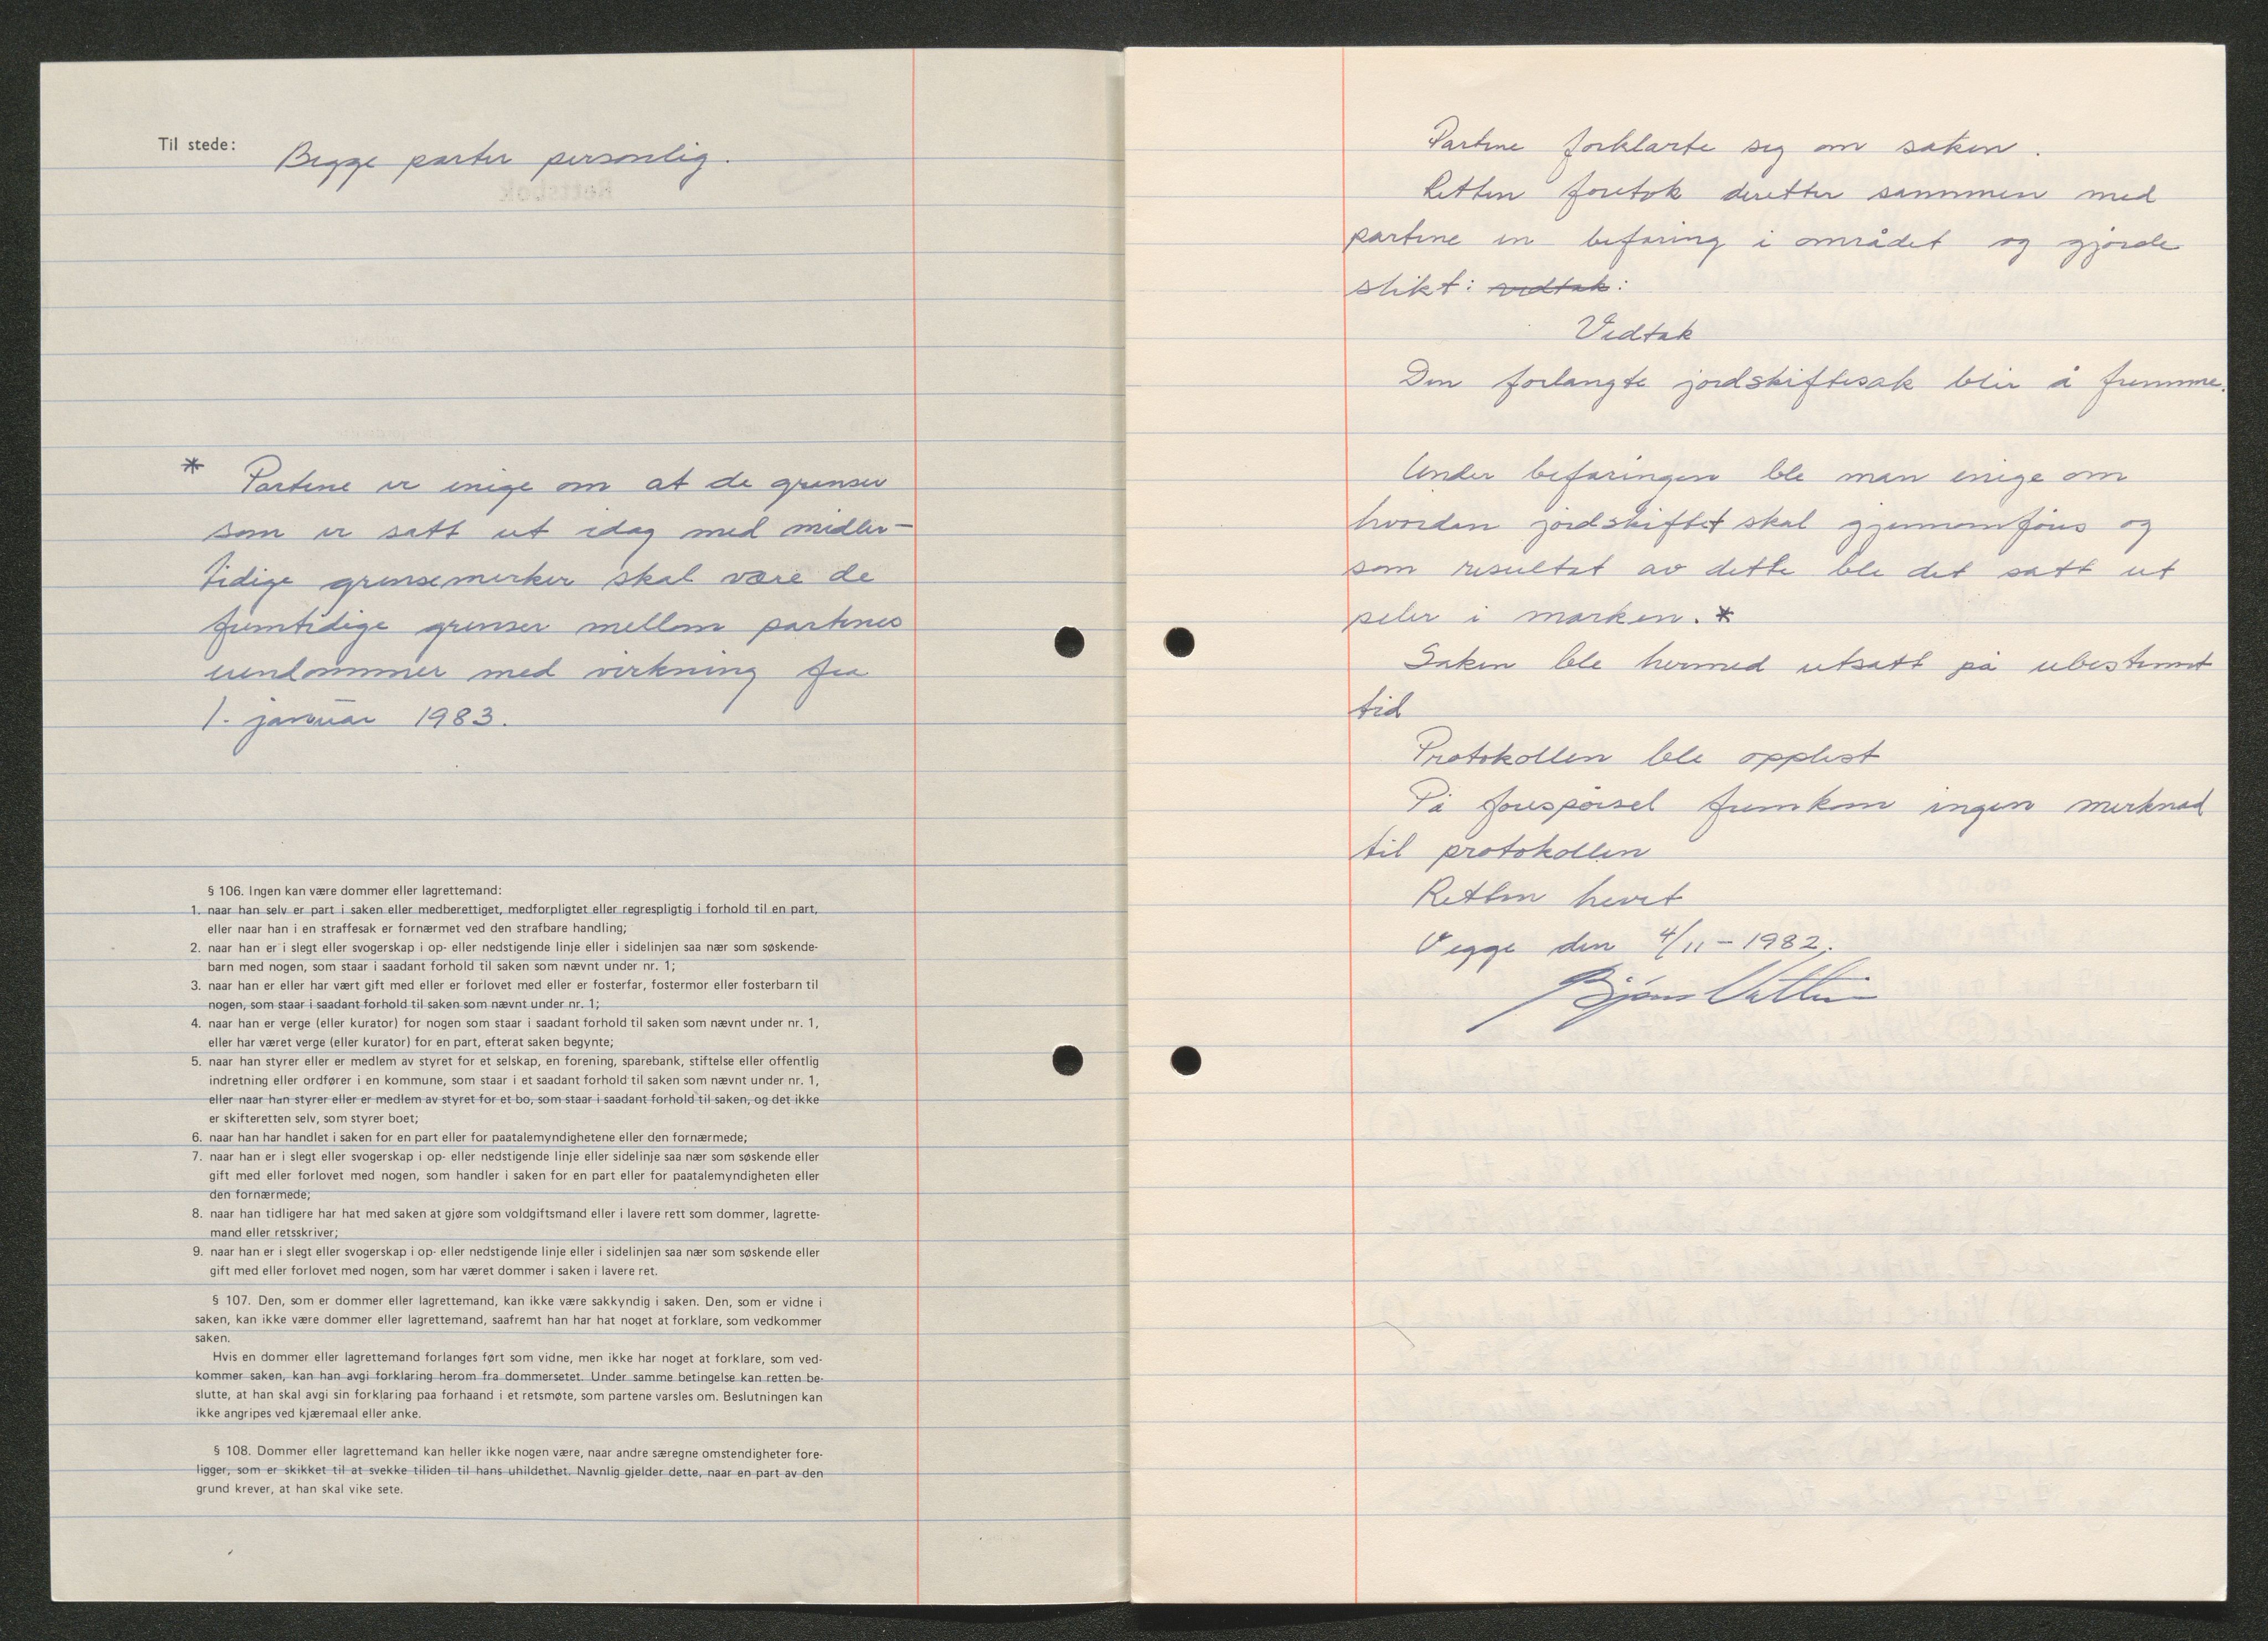 Til stede: Begge parter personlig.
* Partene er enige om at de grenser
som er satt ut idag med midler-
tidige grensemerker skal være de
fremtidige grenser mellom partenes
eiendommer med virkning fra
1. januar 1983.
§ 106. Ingen kan være dommer eller lagrettemand:
1. naar han selv er part i saken eller medberettiget, medforpligtet eller regrespligtig i forhold til en part,
eller naar han i en straffesak er fornærmet ved den strafbare handling;
2. naar han er i slegt eller svogerskap i op- eller nedstigende linje eller i sidelinjen saa nær som søskende-
barn med nogen, som staar i saadant forhold til saken som nævnt under nr. 1;
3. naar han er eller har vært gift med eller er forlovet med eller er fosterfar, fostermor eller fosterbarn til
nogen, som staar i saadant forhold til saken som nævnt under nr. 1;
4. naar han er verge (eller kurator) for nogen som staar i saadant forhold til saken som nævnt under nr. 1,
eller har været verge (eller kurator) for en part, efterat saken begynte;
5. naar han styrer eller er medlem av styret for et selskap, en forening, sparebank, stiftelse eller offentlig
indretning eller ordfører i en kommune, som staar i et saadant forhold til saken som nævnt under nr. 1,
eller naar han styrer eller er medlem av styret for et bo, som staar i saadant forhold til saken, og det ikke
er skifteretten selv, som styrer boet;
6. naar han har handlet i saken for en part eller for paatalemyndighetene eller den fornærmede;
7. naar han er i slegt eller svogerskap i op- eller nedstigende linje eller sidelinje saa nær som søskende eller
gift med eller forlovet med nogen, som handler i saken for en part eller for paatalemyndigheten eller
den fornærmede;
8. naar han tidligere har hat med saken at gjøre som voldgiftsmand eller i lavere rett som dommer, lagrette-
mand eller retsskriver;
9. naar han er i slegt eller svogerskap i op- eller nedstigende linje eller i sidelinjen saa nær som søskende eller
gift med eller forlovet med nogen, som har været dommer i saken i lavere ret.
§ 107. Den, som er dommer eller lagrettemand, kan ikke være sakkyndig i saken. Den, som er vidne i
saken, kan ikke være dommer eller lagrettemand, saafremt han har hat noget at forklare, som vedkommer
saken.
Hvis en dommer eller lagrettemand forlanges ført som vidne, men ikke har noget at forklare, som ved-
kommer saken, kan han avgi forklaring herom fra dommersetet. Under samme betingelse kan retten be-
slutte, at han skal avgi sin forklaring paa forhaand i et retsmøte, som partene varsles om. Beslutningen kan
ikke angripes ved kjæremaal eller anke.
§ 108. Dommer eller lagrettemand kan heller ikke nogen være, naar andre særegne omstendigheter fore-
ligger, som er skikket til at svekke tiliden til hans uhildethet. Navnlig gjelder dette, naar en part av den
grund krever, at han skal vike sete.
Partene forklarte seg om saken.
Retten foretok deretter sammmen med
partene en befaring i området og gjorde
slikt: vedtak:
Vedtak
Den forlangte jordskiftesak blir å fremme.
Under befaringen ble man enige om
hvordan jordskiftet skal gjennomføres og
som resultat av dette ble det satt ut
peler i marken. *
Saken ble hermed utsatt på ubestemt
tid
Protokollen ble opplest
På forespørsel fremkom ingen merknad
til protokollen
Retten hevet
Vegge den 4/11-1982.